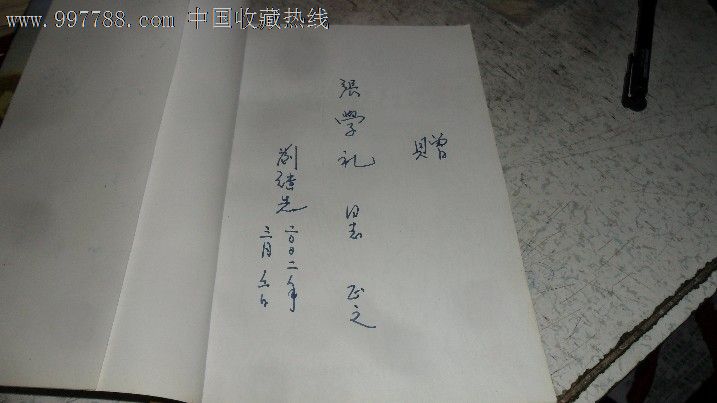 www.997788.com 中国收藏热线
贈
張學礼 同志 正之
劉継光
二00二年
三月六日